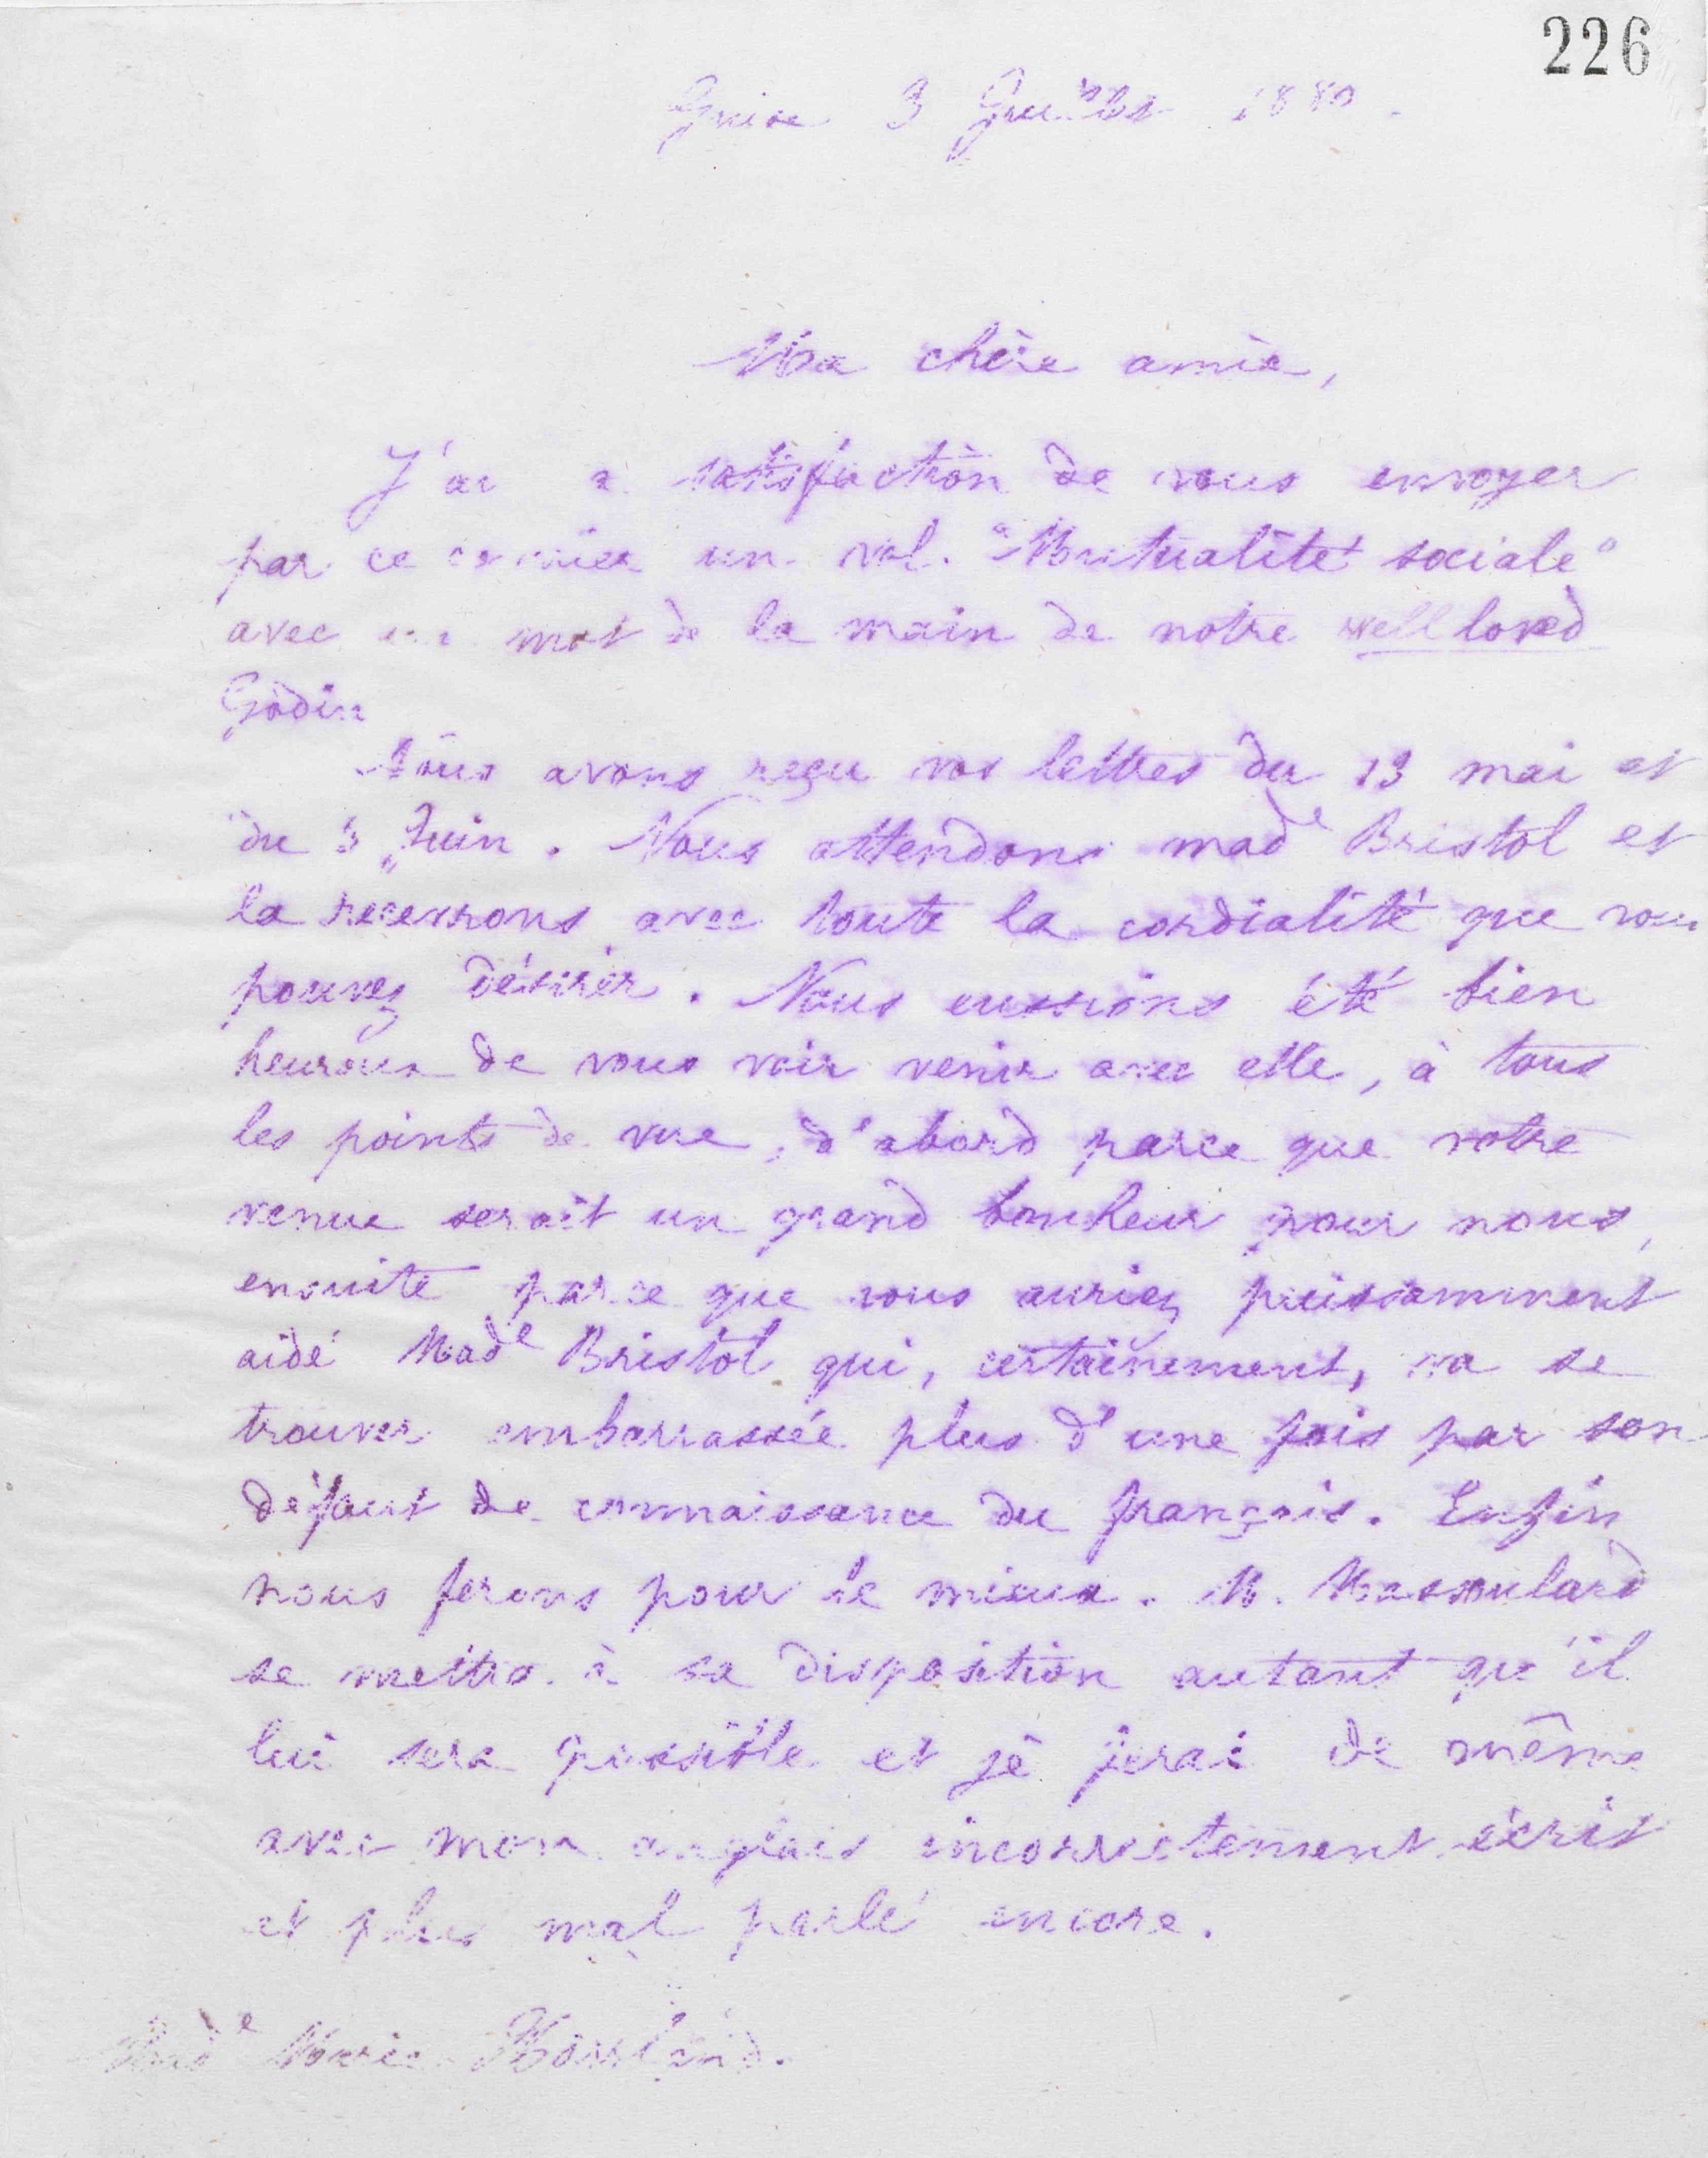 226
Guise 3 Juillet 1880.
Ma chère amie,
J'ai la satisfaction de vous envoyer
par ce courrier un vol. "Mutualité sociale"
avec un mot de la main de notre well loved
Godin
Nous avons reçu vos lettres du 13 mai et
du 3 Juin. Nous attendons mad^e Bristol et
la recevrons avec toute la cordialité que vous
pouvez désirer. Nous eussions été bien
heureux de vous voir venir avec elle, à tous
les points de vue, d'abord parce que votre
venue serait un grand bonheur pour nous,
ensuite parce que vous auriez puissamment
aidé Mad^e Bristol qui, certainement, va se
trouver embarrassée plus d'une fois par son
défaut de connaissance du français. Enfin
nous ferons pour le mieux. M. Massoulard
se mettra à sa disposition autant qu'il
lui sera possible et je ferai de même
avec mon anglais incorrectement écrit
et plus mal parlé encore.
Mad^e Marie Howland.